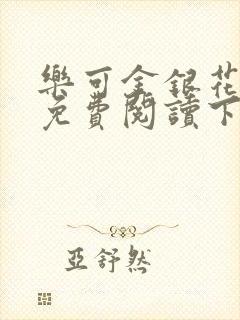 樂可金銀花
免費閱讀下
亞舒然